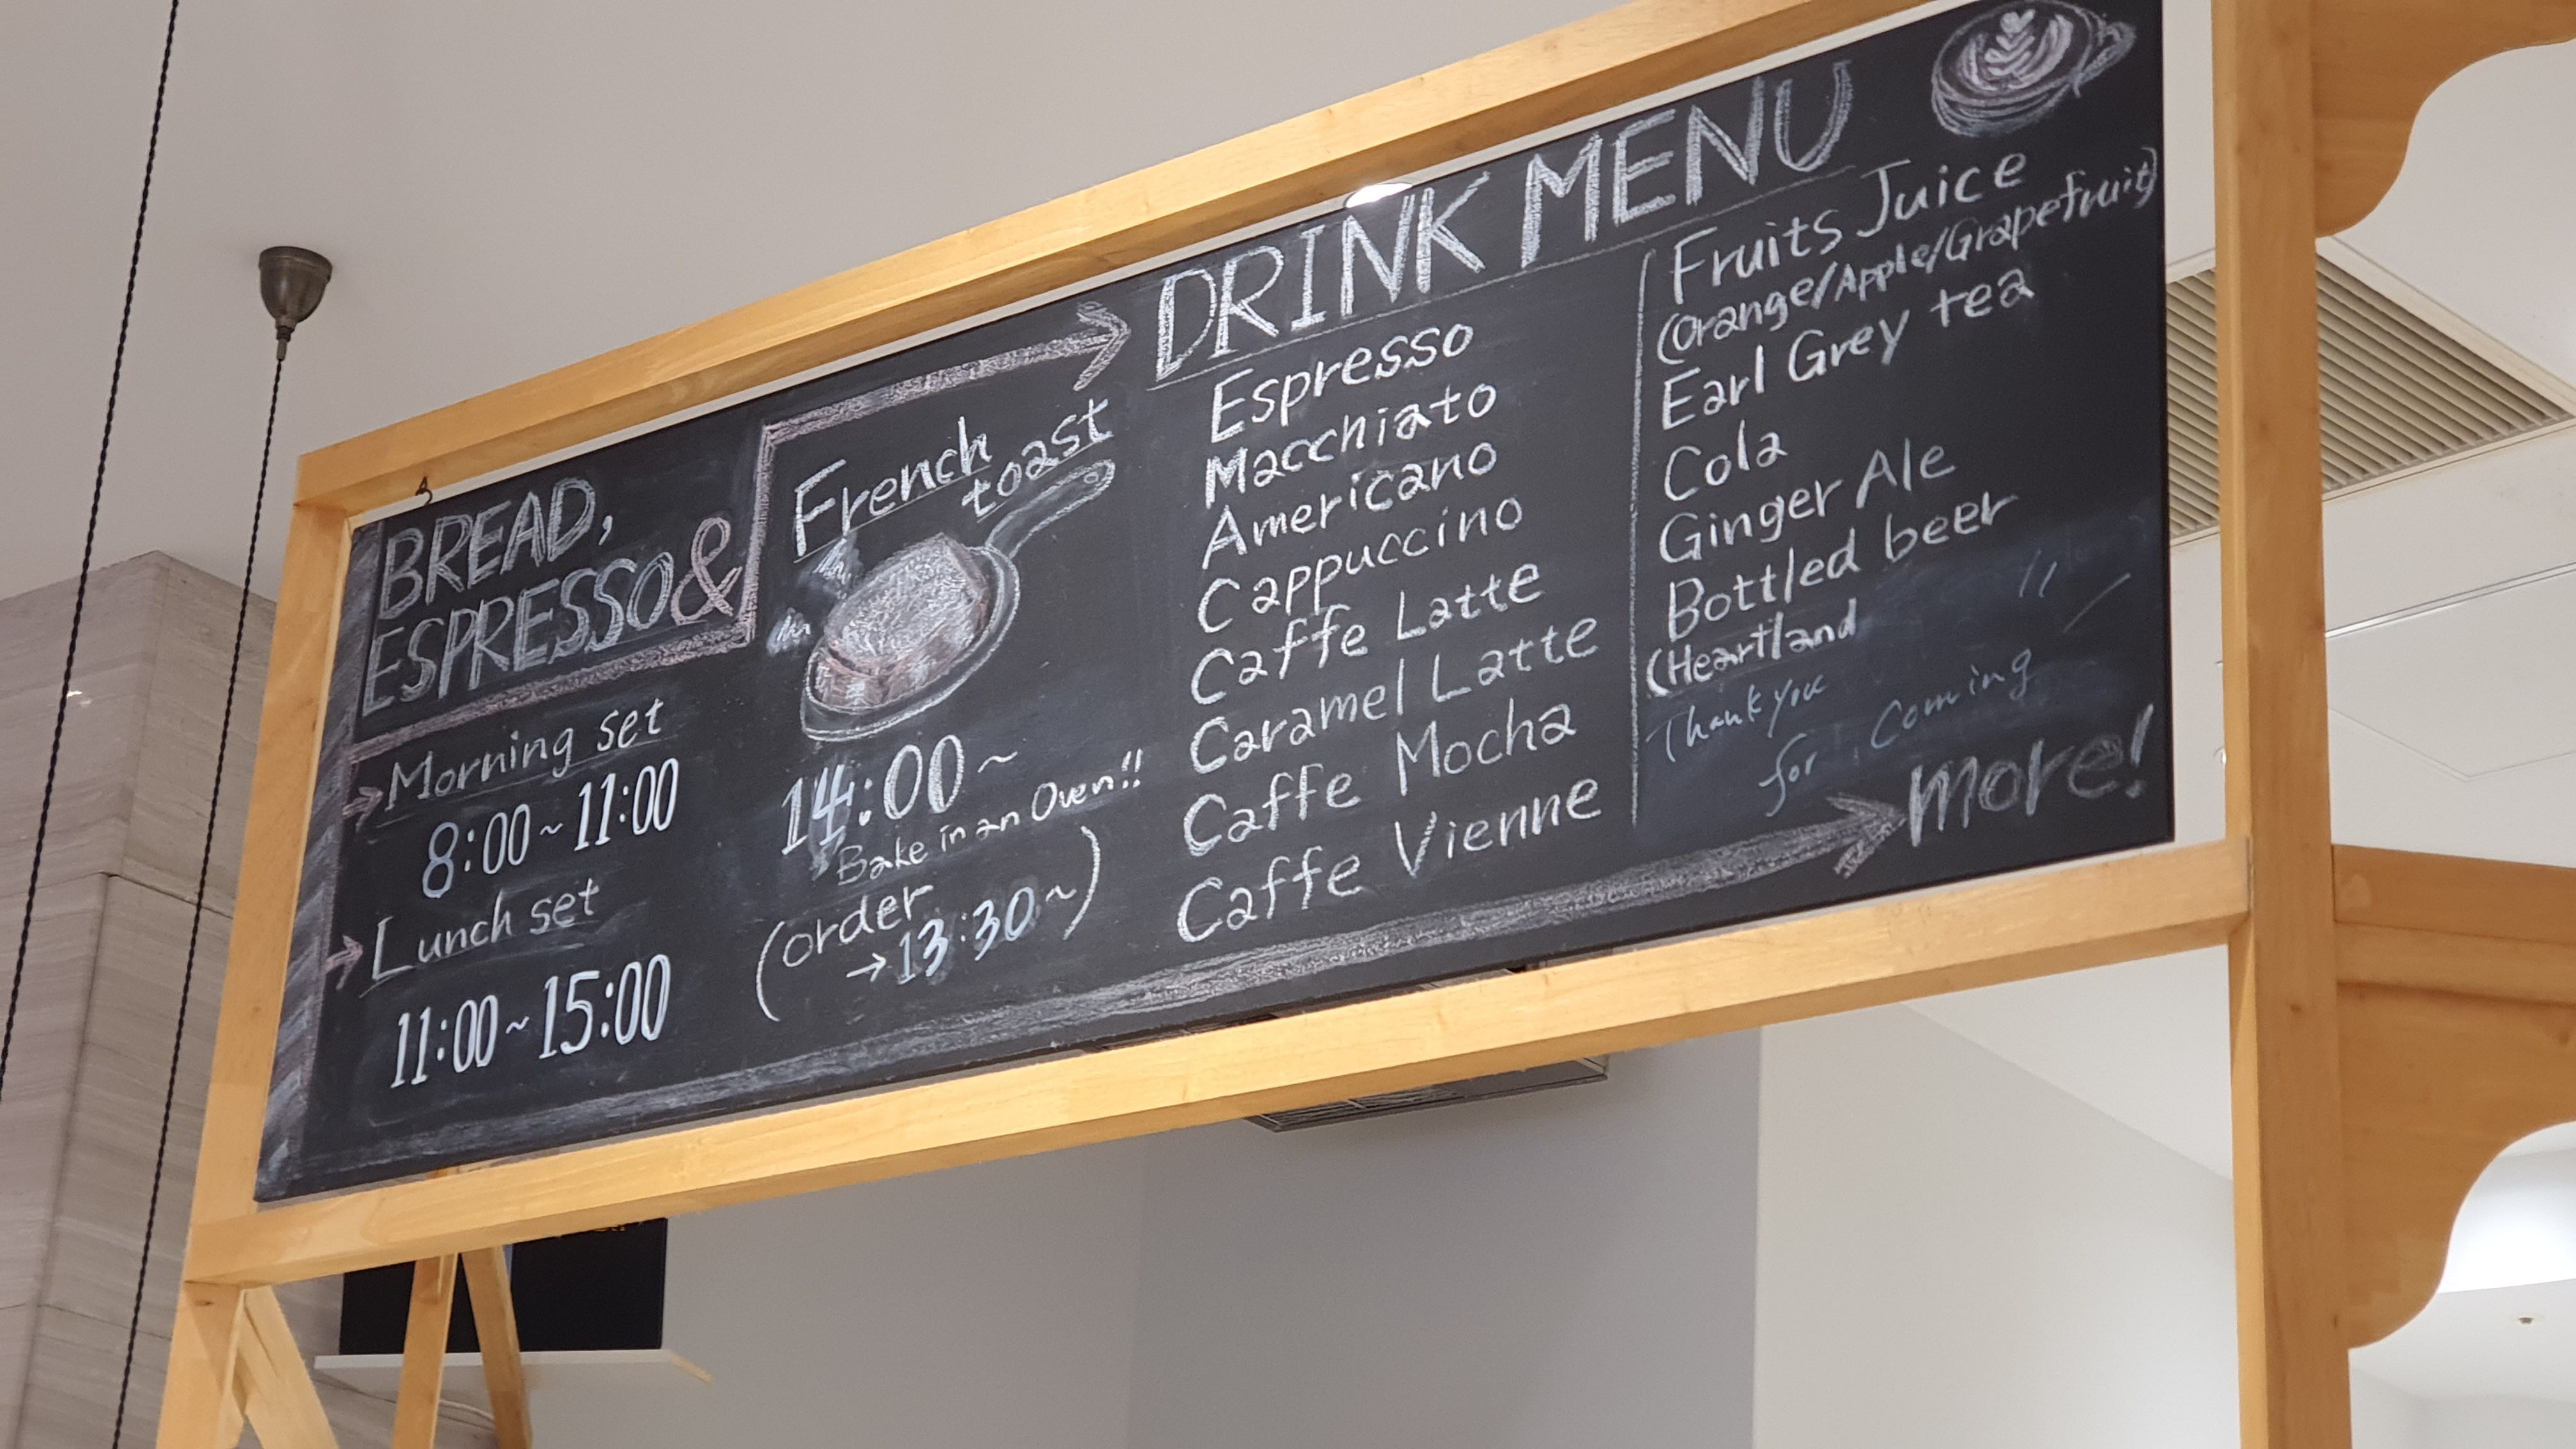 BREAD,
ESPRESSO&
Morning set
8:00~11:00
Lunch set
11:00~15:00
French
toast
14:00~
Bake in an Oven!!
(order
→13:30~)
DRINK MENU
Espresso
Macchiato
Americano
Cappuccino
Caffe Latte
Caramel Latte
Caffe Mocha
Caffe Vienne
Fruits Juice
(Orange/Apple/Grapefruit)
Earl Grey tea
Cola
Ginger Ale
Bottled beer
(Heartland
Thank you
for Coming
more!